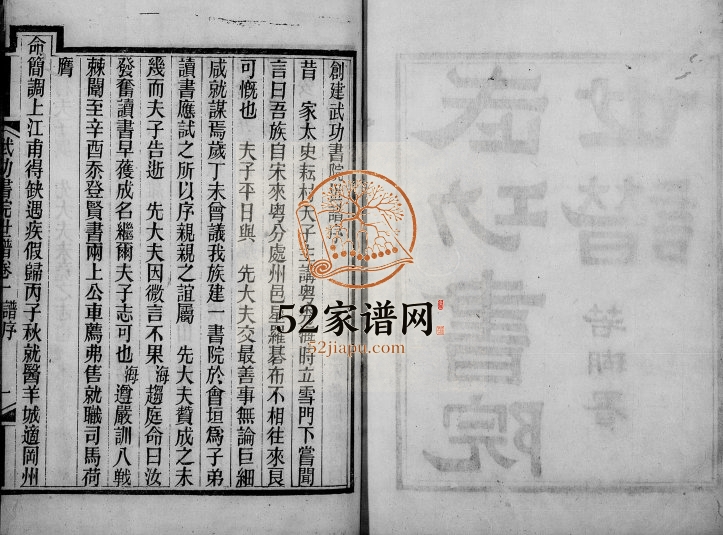 創建武功書院世譜序
昔　家太史耘村夫子主講粵海時立雪門下嘗聞
言曰吾族自宋來粵分處州邑星羅碁布不相往來良
可慨也　夫子平日與　先大夫交最善事無論巨細
咸就謀焉歲丁未會議我族建一書院於會垣爲子弟
讀書應試之所以序親親之誼屬　先大夫贊成之未
幾而夫子告逝　先大夫因微言不果海趨庭命曰汝
發奮讀書早獲成名繼爾夫子志可也海遵嚴訓八戰
棘闈至辛酉忝登賢書兩上公車薦弗售就職司馬荷
膺
命簡調上江甫得缺遇疾假歸丙子秋就醫羊城適岡州
武功書院世譜卷一　譜序　一
世譜
武功書院
52家谱网
52jiapu.com